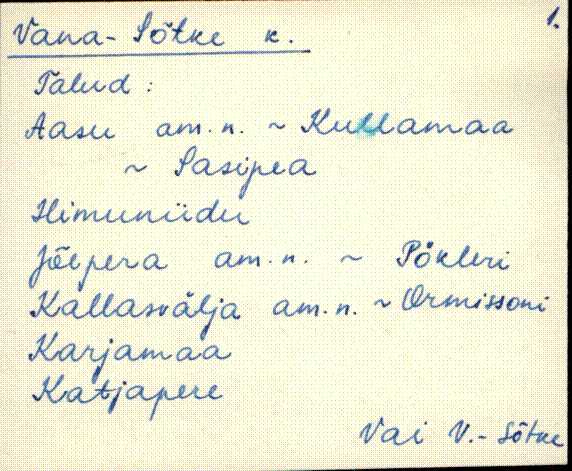 1.
Vana-Sõtke k.
Talud:
Aasu am.n. ~ Kullamaa
~ Sasipea
Himuniidu
Jõepera am.n. ~ Pökleri
Kallasvälja am.n. ~ Ormissoni
Karjamaa
Katjapere
Vai V.-Sõtke